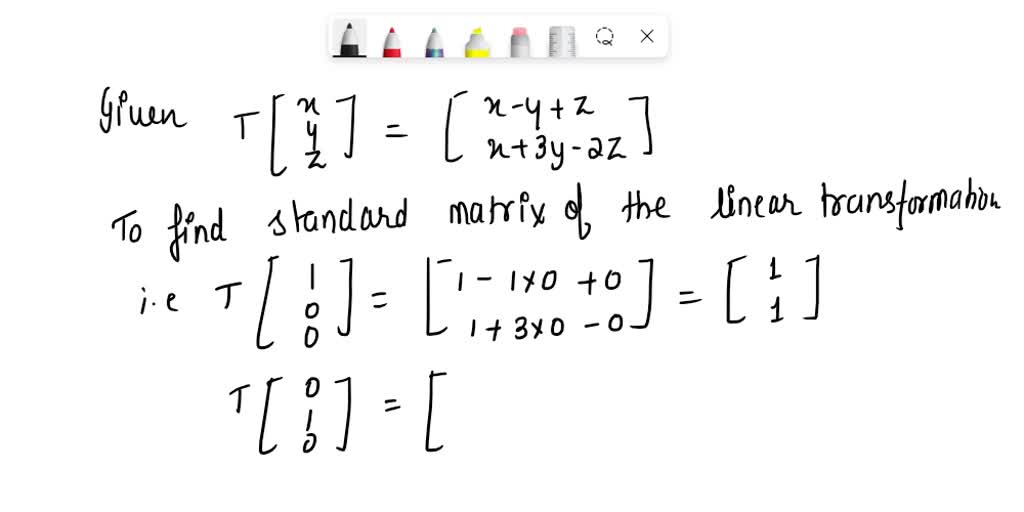 Given T[x y z] = [x-y+z x+3y-2z]
To find standard matrix of the linear transformation
i.e T[1 0 0] = [1-1×0+0 1+3×0-0] = [1 1]
T[0 1 0] = [